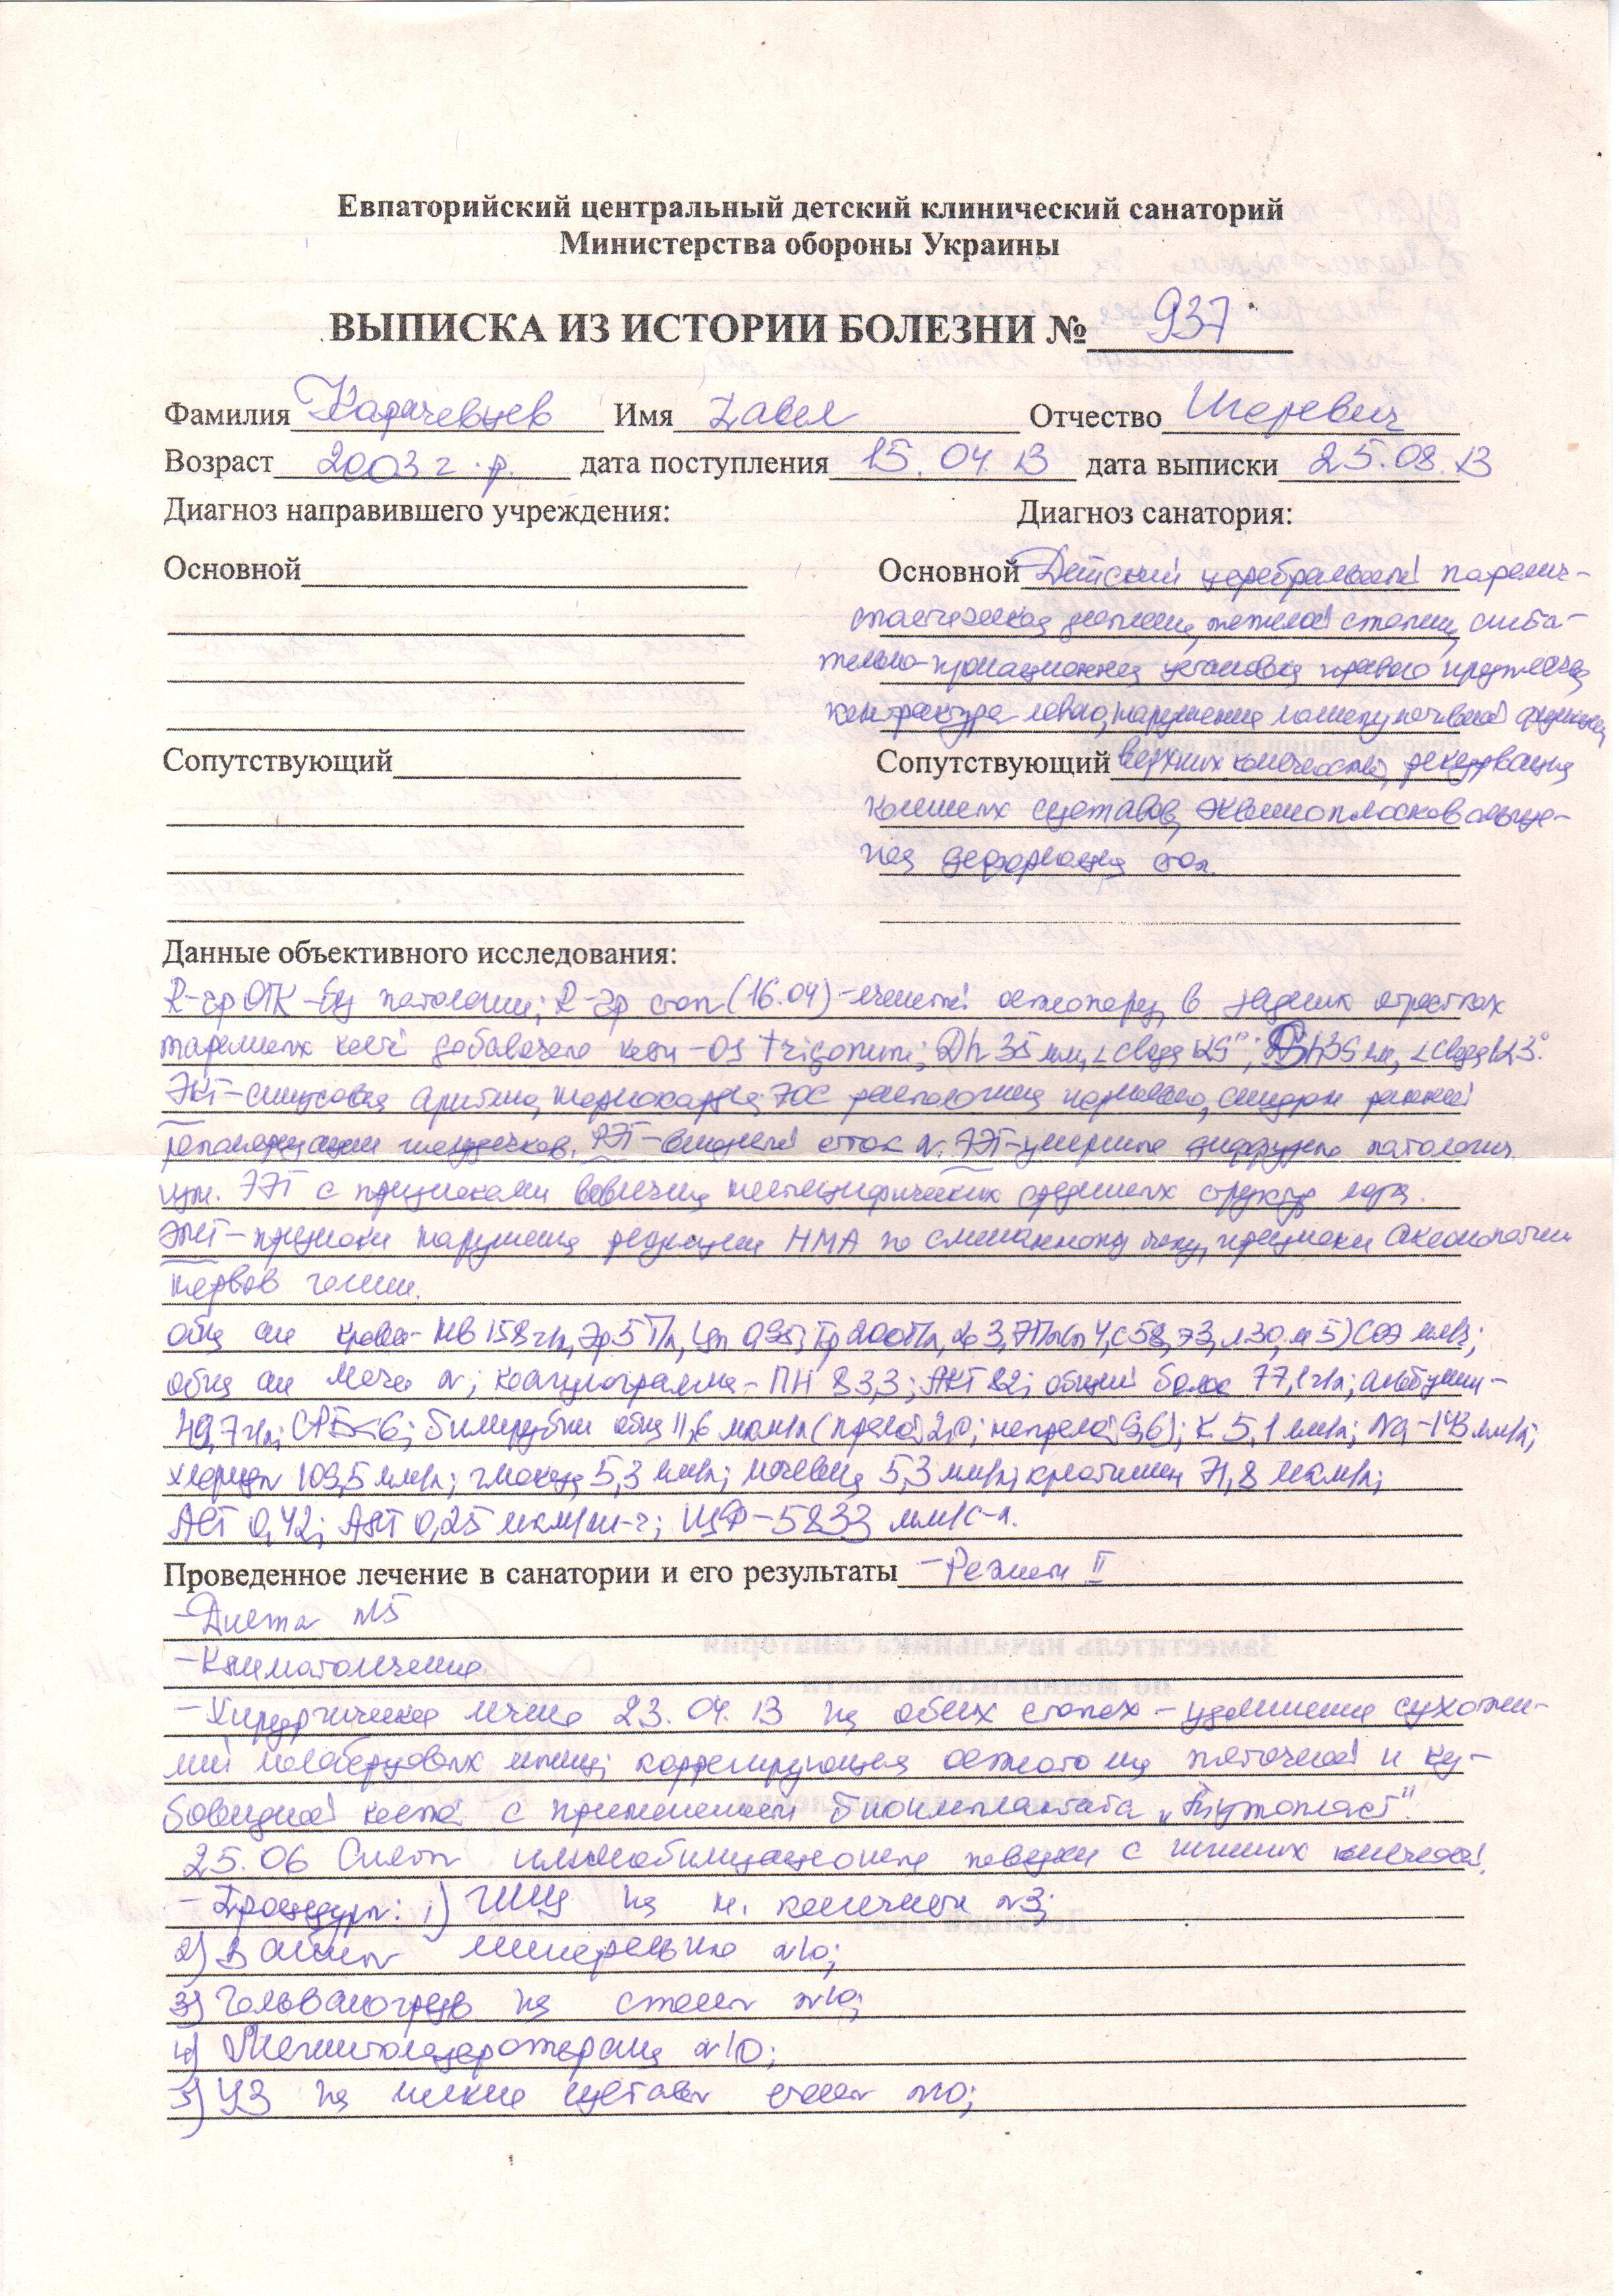 Евпаторийский центральный детский клинический санаторий
Министерства обороны Украины
ВЫПИСКА ИЗ ИСТОРИИ БОЛЕЗНИ № 937
Фамилия Карачевцев Имя Павел Отчество Игоревич
Возраст 2003 г.р. дата поступления 15.04.13 дата выписки 25.08.13
Диагноз направившего учреждения: Диагноз санатория:
Основной Основной Детский церебральный паралич-
спастическая диплегия, тяжелой степени, сгиба-
тельно-пронационная установка правого предплечья,
контрактура левого, нарушение манипулятивной функции
Сопутствующий Сопутствующий верхних конечностей, рекурвация
коленных суставов, эквиноплосковальгус-
ная деформация стоп.
Данные объективного исследования:
R-гр ОГК - без патологии; R-гр стоп (16.04) - остеопороз, в задних отростках
таранных костей добавочные кости - os trigonum; Dh 35 мм, ∠свода 125°; Sh 35 мм, ∠свода 123°.
ЭКГ - синусовая аритмия, нормокардия. ЭОС расположена нормально, синдром ранней
реполяризации желудочков. РЭГ - венозный отток N. ЭЭГ - умеренно диффузно патологич.
изм. ЭЭГ с признаками вовлечения неспецифических срединных структур мозга.
ЭМГ - признаки нарушения редукции НМА по смешанному типу, признаки аксонопатии
нервов голени.
общ ан крови - Нв 158 г/л, Эр 5 Т/л, цп 0,95; Тр 200 Г/л, Le 3,7 Г/л (п 4, с 58, э 3, л 30, м 5) СОЭ мм/ч;
общ ан мочи N; коагулограмма - ПИ 83,3; АКТ 82; общий белок 77,1 г/л; альбумин -
49,7 г/л; СРБ<6; билирубин общ 11,6 мкм/л (прямой 2,0; непрямой 9,6); К 5,1 мм/л; Na - 143 мм/л;
хлориды 103,5 мм/л; глюкоза 5,3 мм/л; мочевина 5,3 мм/л; креатинин 71,8 мкм/л;
АСТ 0,42; АЛТ 0,25 мкм/мл-ч; ЩФ - 5833 мм/с-л.
Проведенное лечение в санатории и его результаты - Режим II
- Диета №5
- Климатолечение
- Хирургическое лечение 23.04.13 на обеих стопах - удлинение сухожи-
лий малоберцовых мышц; коррегирующая остеотомия пяточной и ку-
бовидной костей с применением биоимплантата „Тутопласт".
25.06 Сняты иммобилизационные повязки с нижних конечностей.
- Процедуры: 1) на н. конечности №3;
2) Ванны минеральные №10;
3) Гальваногрязь на стопы №10;
4) Магнитолазеротерапия №10;
5) УЗ на мелкие суставы стоп №10;